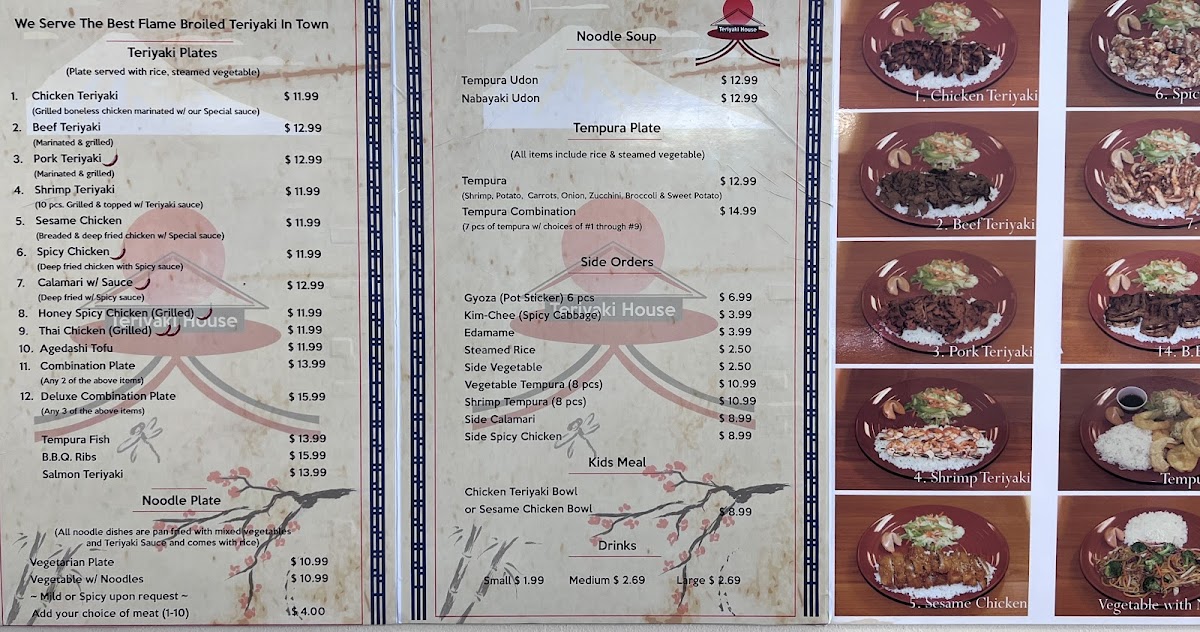 We Serve The Best Flame Broiled Teriyaki In Town
Teriyaki Plates
(Plate served with rice, steamed vegetable)
1. Chicken Teriyaki $ 11.99
(Grilled boneless chicken marinated w/ our Special sauce)
2. Beef Teriyaki $ 12.99
(Marinated & grilled)
3. Pork Teriyaki $ 12.99
(Marinated & grilled)
4. Shrimp Teriyaki $ 11.99
(10 pcs. Grilled & topped w/ Teriyaki sauce)
5. Sesame Chicken $ 11.99
(Breaded & deep fried chicken w/ Special sauce)
6. Spicy Chicken $ 11.99
(Deep fried chicken with Spicy sauce)
7. Calamari w/ Sauce $ 12.99
(Deep fried w/ Spicy sauce)
8. Honey Spicy Chicken (Grilled) $ 11.99
Teriyaki House
9. Thai Chicken (Grilled) $ 11.99
10. Agedashi Tofu $ 11.99
11. Combination Plate $ 13.99
(Any 2 of the above items)
12. Deluxe Combination Plate $ 15.99
(Any 3 of the above items)
Tempura Fish $ 13.99
B.B.Q. Ribs $ 15.99
Salmon Teriyaki $ 13.99
Noodle Plate
(All noodle dishes are pan fried with mixed vegetables
and Teriyaki Sauce and comes with rice)
Vegetarian Plate $ 10.99
Vegetable w/ Noodles $ 10.99
~ Mild or Spicy upon request ~
Add your choice of meat (1-10) $ 4.00
Teriyaki House
Noodle Soup
Tempura Udon $ 12.99
Nabayaki Udon $ 12.99
Tempura Plate
(All items include rice & steamed vegetable)
Tempura $ 12.99
(Shrimp, Potato, Carrots, Onion, Zucchini, Broccoli & Sweet Potato)
Tempura Combination $ 14.99
(7 pcs of tempura w/ choices of #1 through #9)
Side Orders
Gyoza (Pot Sticker) 6 pcs $ 6.99
Teriyaki House
Kim-Chee (Spicy Cabbage) $ 3.99
Edamame $ 3.99
Steamed Rice $ 2.50
Side Vegetable $ 2.50
Vegetable Tempura (8 pcs) $ 10.99
Shrimp Tempura (8 pcs) $ 10.99
Side Calamari $ 8.99
Side Spicy Chicken $ 8.99
Kids Meal
Chicken Teriyaki Bowl
or Sesame Chicken Bowl $ 8.99
Drinks
Small $ 1.99 Medium $ 2.69 Large $ 2.69
1. Chicken Teriyaki
6. Spic
2. Beef Teriyaki
7.
3. Pork Teriyaki
14. B.B
4. Shrimp Teriyaki
Tempu
5. Sesame Chicken
Vegetable with N